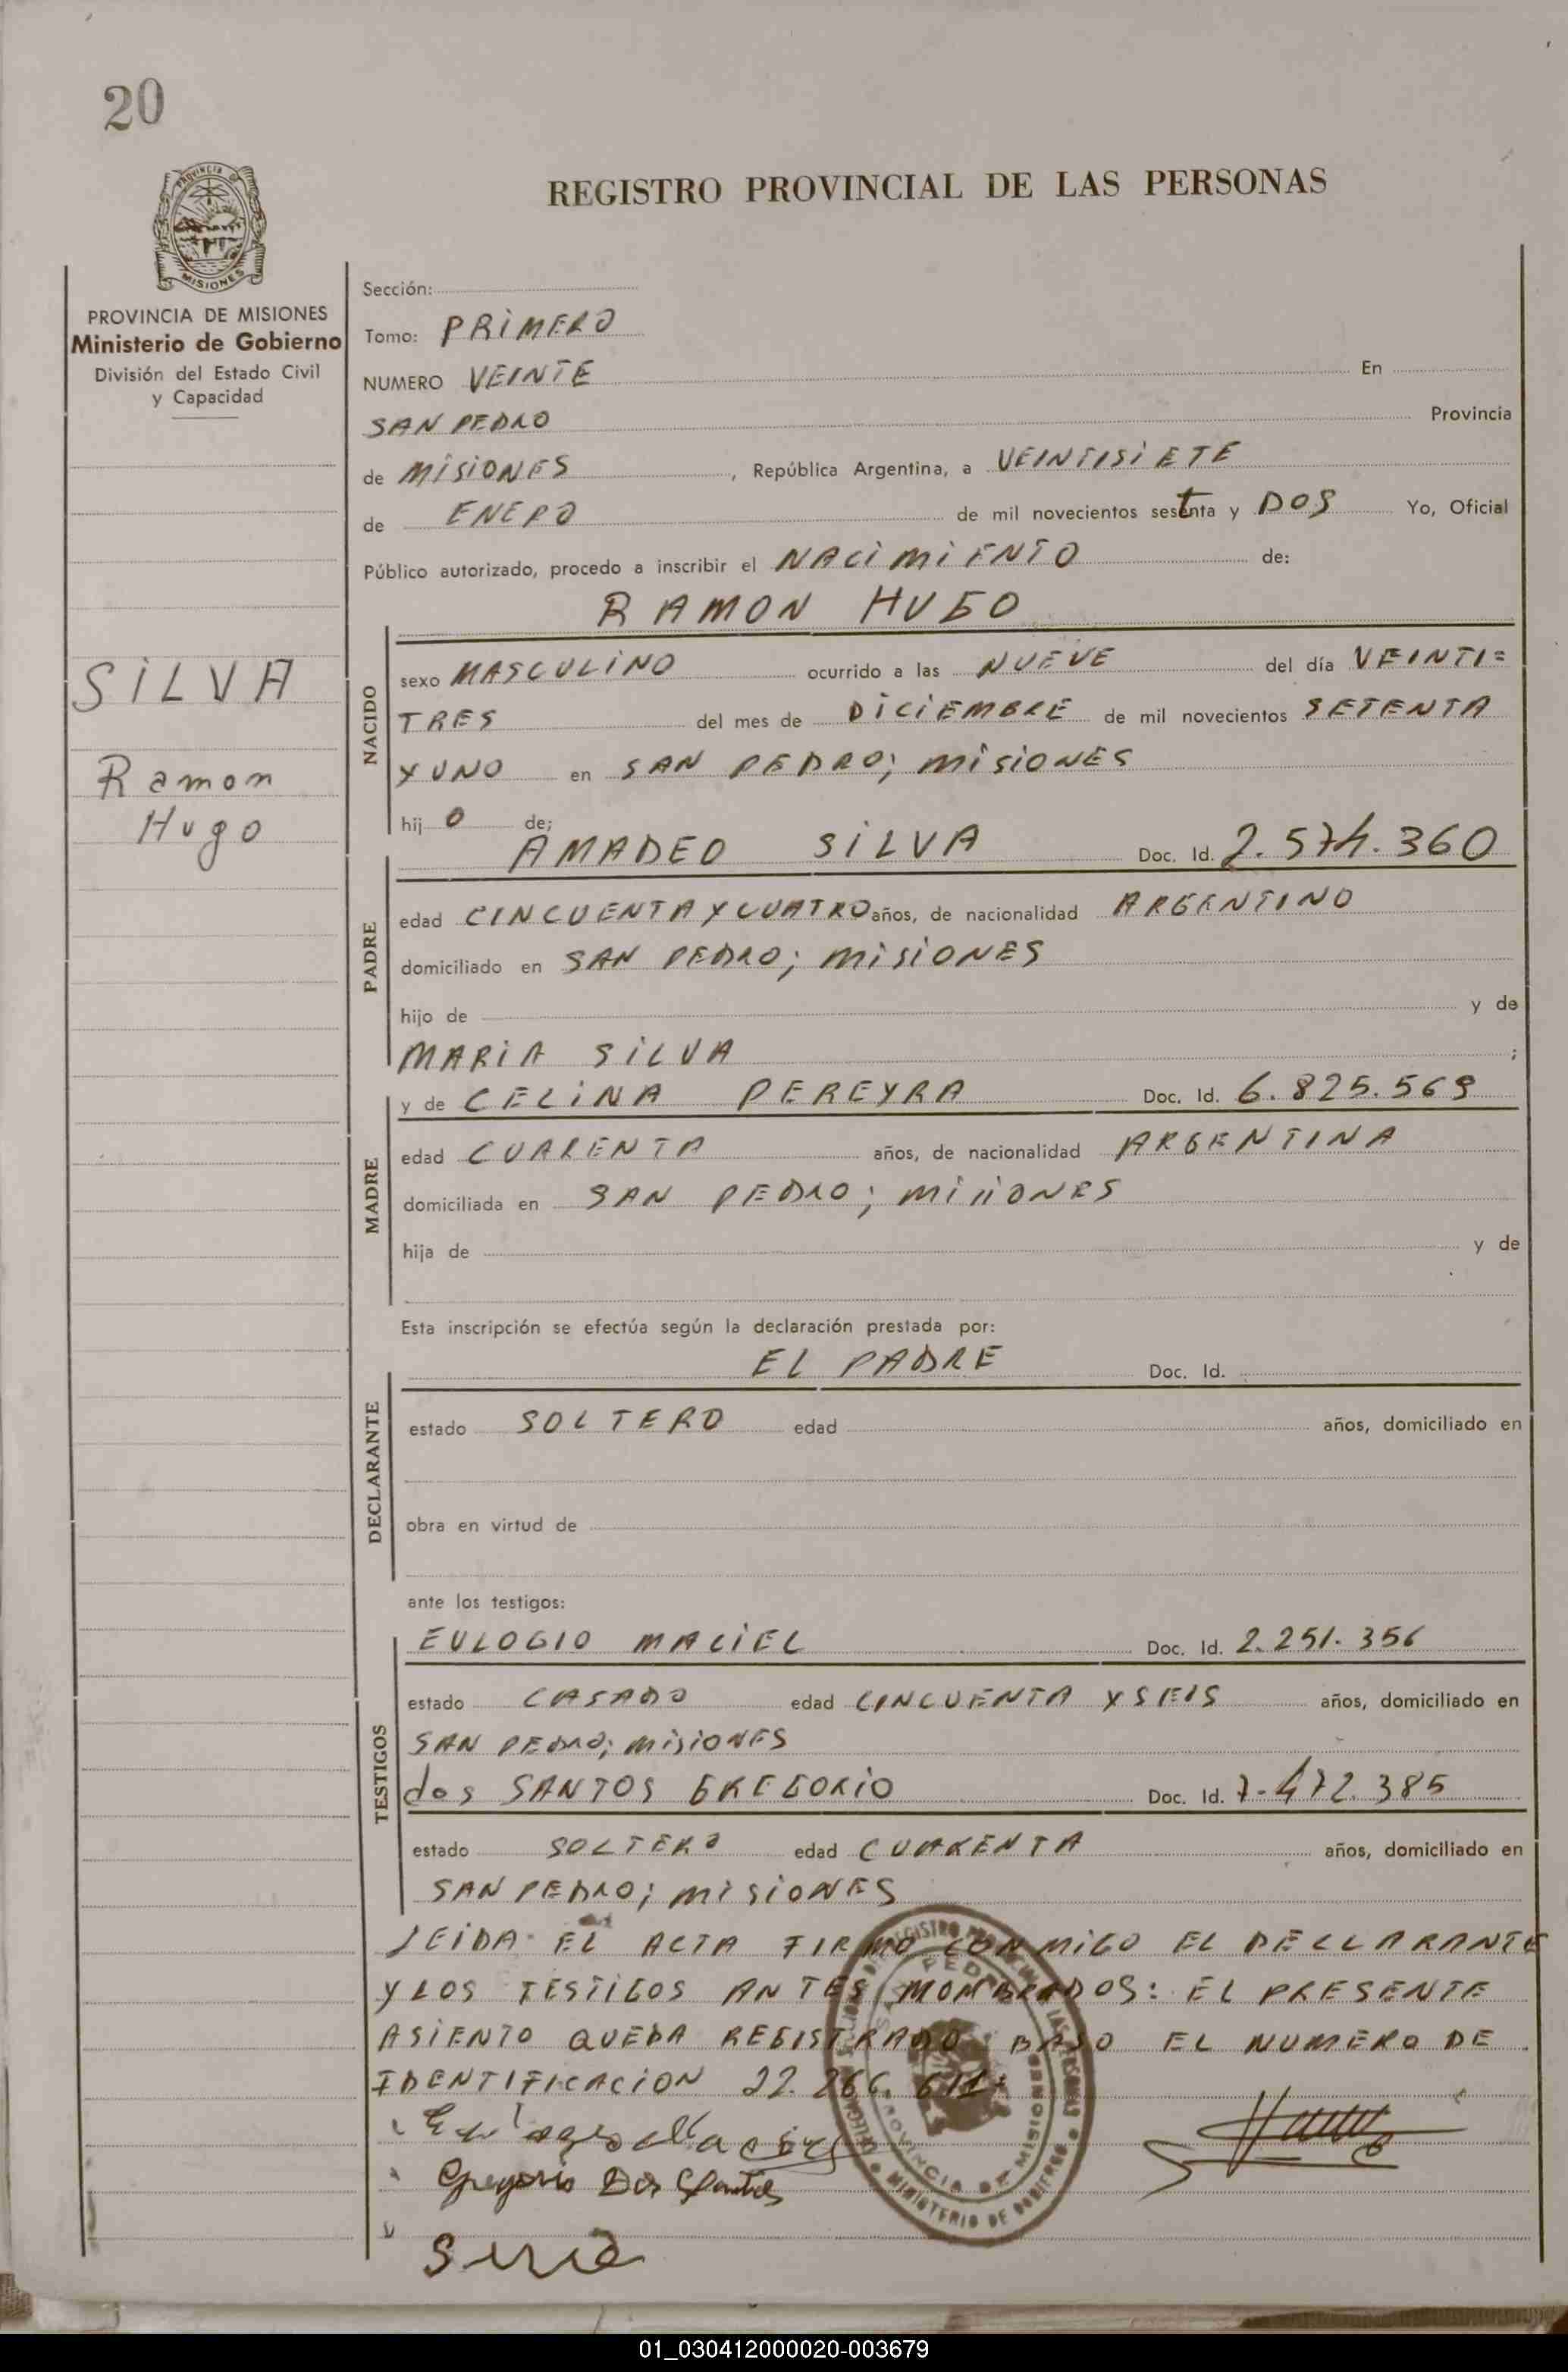 20
PROVINCIA DE MISIONES
REGISTRO PROVINCIAL DE LAS PERSONAS
PROVINCIA DE MISIONES
Ministerio de Gobierno
División del Estado Civil
y Capacidad
SILVA
Ramon
Hugo
Sección:
Tomo: PRIMERO
NUMERO VEINTE En
SAN PEDRO Provincia
de MISIONES, República Argentina, a VEINTISIETE
de ENERO de mil novecientos setenta y DOS Yo, Oficial
Público autorizado, procedo a inscribir el NACIMIENTO de:
RAMON HUGO
NACIDO
sexo MASCULINO ocurrido a las NUEVE del día VEINTI=
TRES del mes de DICIEMBRE de mil novecientos SETENTA
Y UNO en SAN PEDRO; MISIONES
hij O de;
AMADEO SILVA Doc. Id. 2.574.360
PADRE
edad CINCUENTA Y CUATRO años, de nacionalidad ARGENTINO
domiciliado en SAN PEDRO; MISIONES
hijo de y de
MARIA SILVA ;
y de CELINA PEREYRA Doc. Id. 6.825.569
MADRE
edad CUARENTA años, de nacionalidad ARGENTINA
domiciliada en SAN PEDRO; MISIONES
hija de y de
Esta inscripción se efectúa según la declaración prestada por:
EL PADRE Doc. Id.
DECLARANTE
estado SOLTERO edad años, domiciliado en
obra en virtud de
ante los testigos:
EULOGIO MACIEL Doc. Id. 2.251.356
TESTIGOS
estado CASADO edad CINCUENTA Y SEIS años, domiciliado en
SAN PEDRO; MISIONES
dos SANTOS GREGORIO Doc. Id. 7.472.385
estado SOLTERO edad CUARENTA años, domiciliado en
SAN PEDRO; MISIONES
LEIDA EL ACTA FIRMO CONMIGO EL DECLARANTE
Y LOS TESTIGOS ANTES MOMBRADOS: EL PRESENTE
ASIENTO QUEDA REGISTRADO BAJO EL NUMERO DE
IDENTIFICACION 22.266.611=
Gregorio Dos Santos
SAN PEDRO
PROVINCIA DE MISIONES
MINISTERIO DE GOBIERNO
01_030412000020-003679